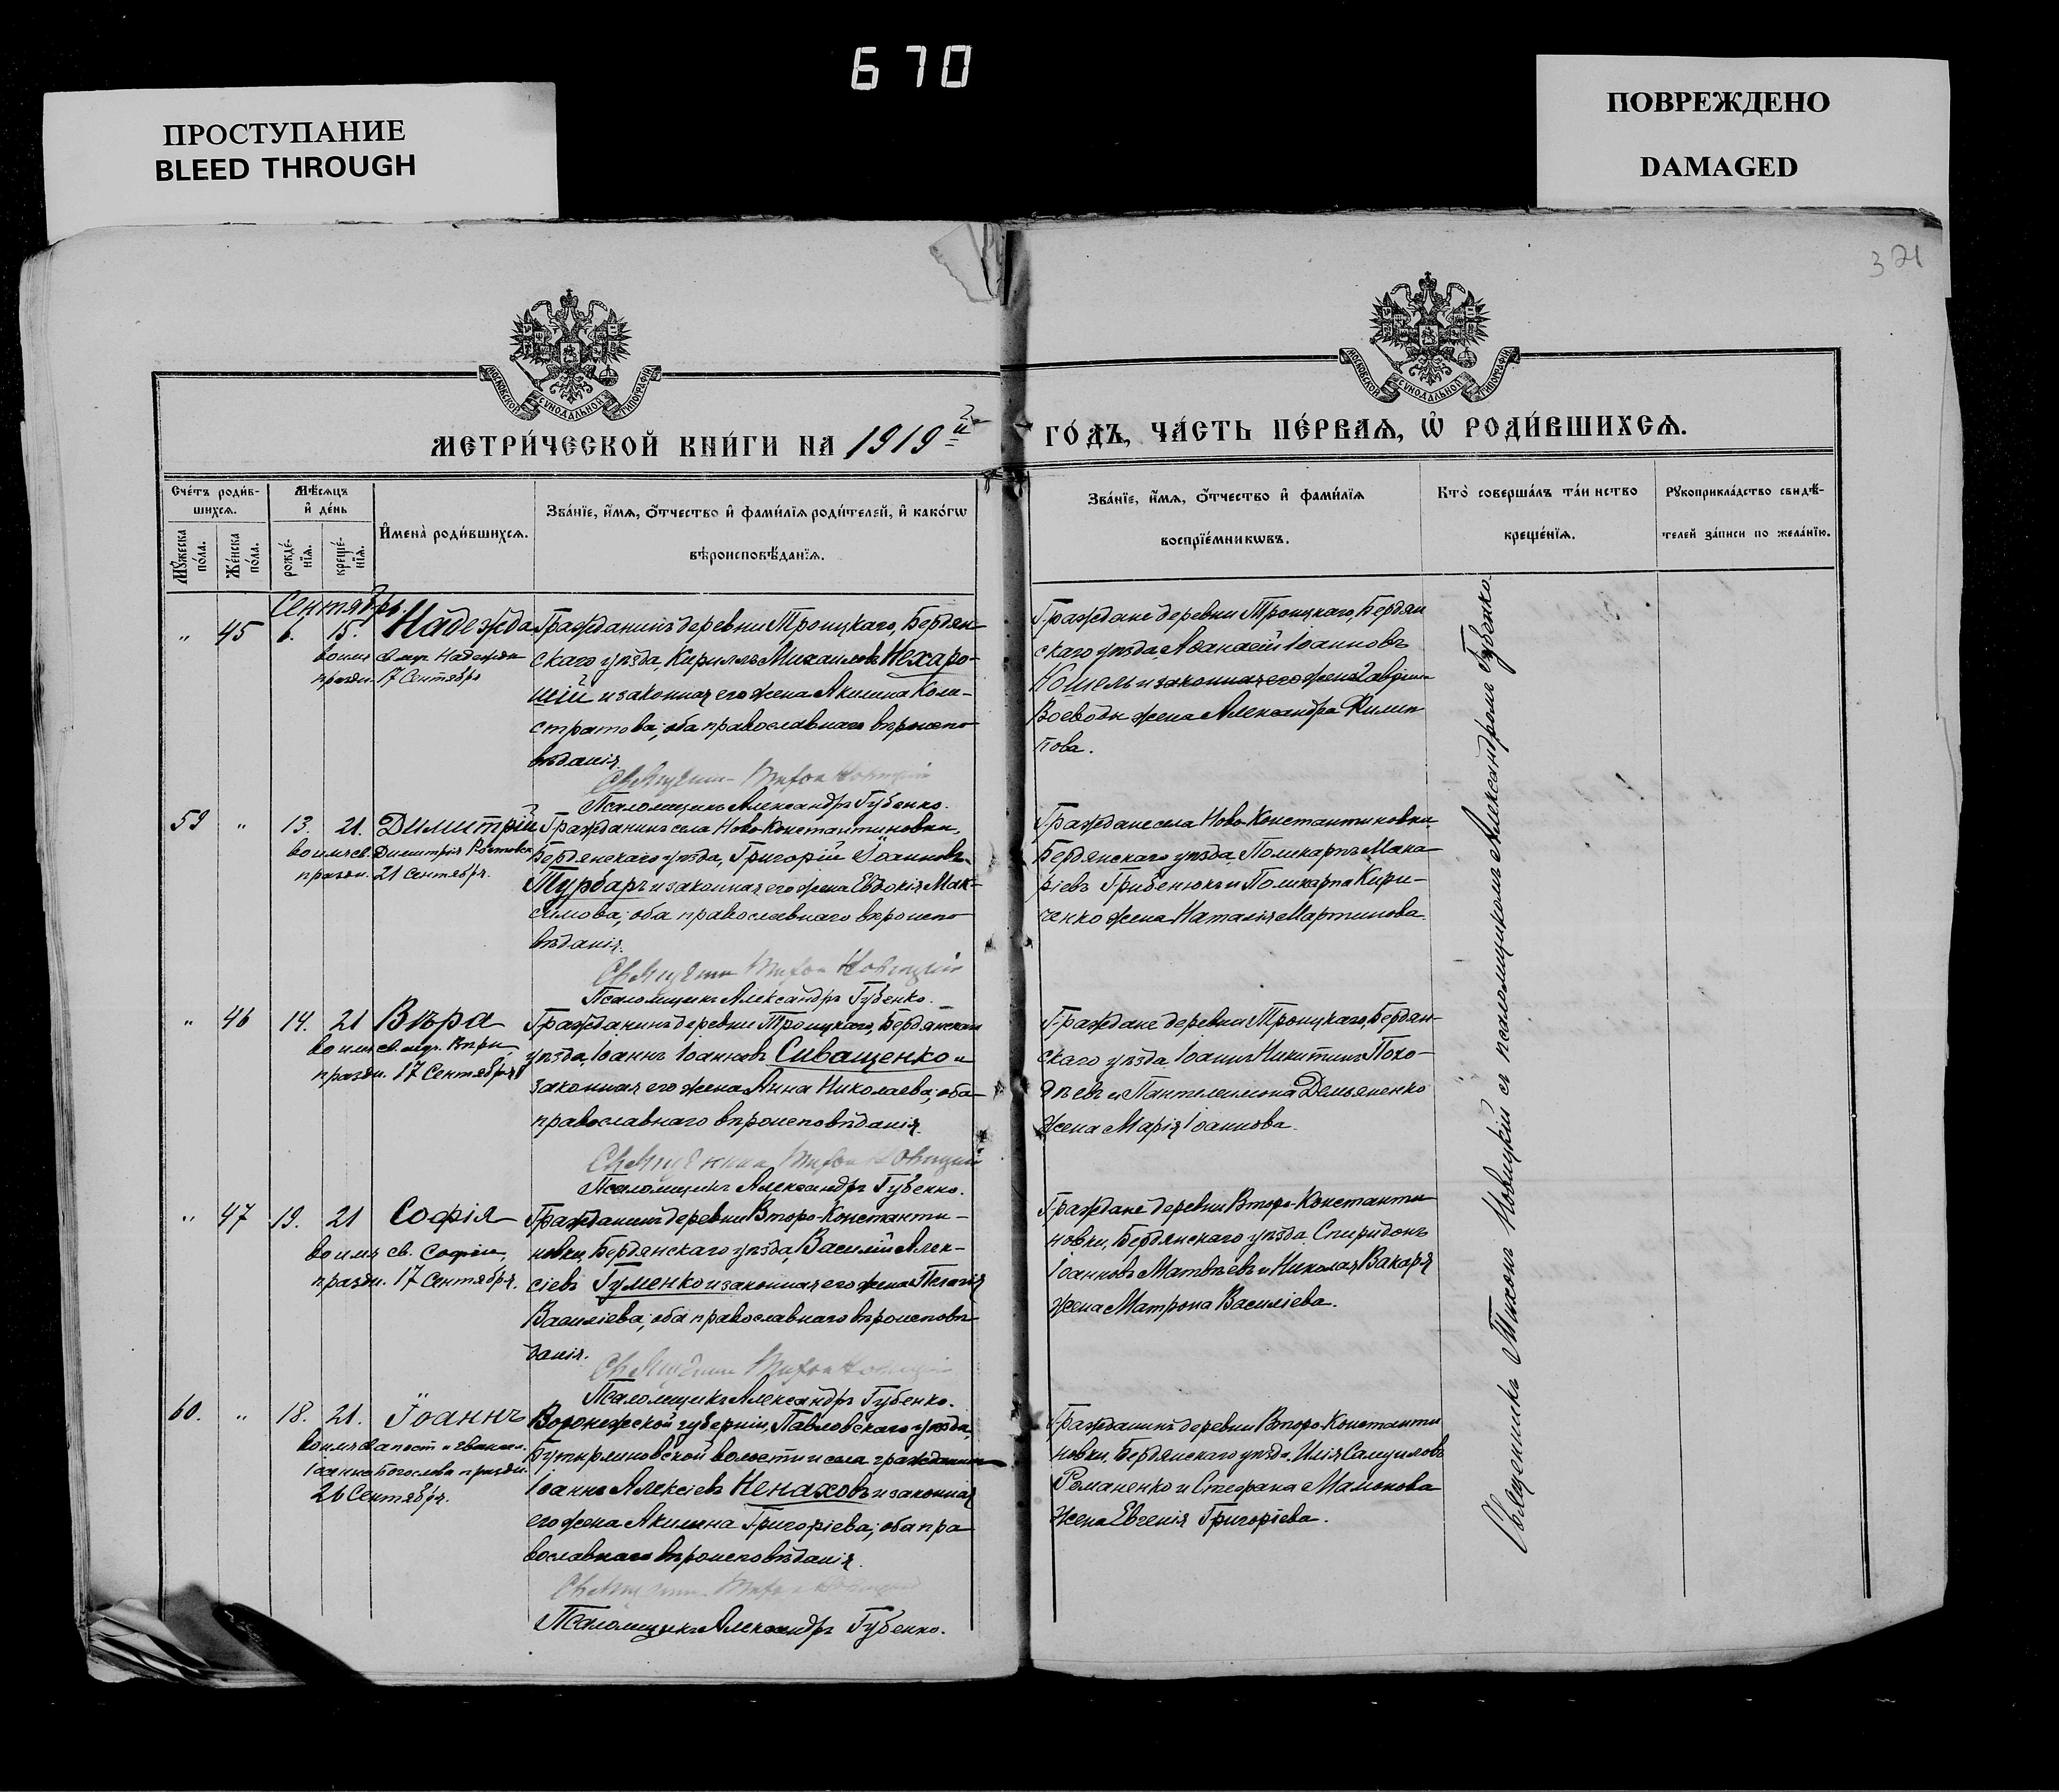 670
ПРОСТУПАНИЕ
BLEED THROUGH
ПОВРЕЖДЕНО
DAMAGED
321
МОСКОВСКОЙ СѴНОДАЛЬНОЙ ТИПОГРАФІИ
МОСКОВСКОЙ СѴНОДАЛЬНОЙ ТИПОГРАФІИ
МЕТРИ́ЧЕСКОЙ КНИ́ГИ НА 1919й
ГО́ДЪ, ЧА́СТЬ ПЕ́РВАѦ, Ѡ҆ РОДИ́ВШИХСѦ.
Сче́тъ роди́в-
шихсѧ.
Мꙋ́жеска по́ла.
Же́нска по́ла.
Мѣ́сѧцъ
и҆ де́нь
рожде́-
нїѧ.
креще́-
нїѧ.
И҆мена̀ роди́вшихсѧ.
Зва́нїе, и҆́мѧ, ѻ҆́тчество и҆ фами́лїѧ роди́телей, и҆ како́гѡ
вѣроисповѣ́данїѧ.
Зва́нїе, и҆́мѧ, ѻ҆́тчество и҆ фами́лїѧ
воспрїе́мникѡвъ.
Кто̀ соверша́лъ та́инство
креще́нїѧ.
Рꙋкоприкла́дство свидѣ́-
телей за́писи по жела́нїю.
Сентябрь.
„ 45 6. 15. Надежда
во имя св. муч. Надежды
праздн. 17 Сентября
Гражданинъ деревни Троицкаго, Бердян-
скаго уѣзда, Кириллъ Михаиловъ Нехаро-
шій и законная его жена Акилина Кали-
стратова; оба православнаго вѣроиспо-
вѣданія.
Священникъ Тихонъ Новицкій
Псаломщикъ Александръ Губенко.
Граждане деревни Троицкаго, Бердян
скаго уѣзда, Аѳанасій Іоанновъ
Кошель и законная его жена Гавріила
Воеводы жена Александра Филип
пова.
59 „ 13. 21. Димитрій
во имя св. Димитрія Ростовск
праздн. 21 Сентября.
Гражданинъ села Ново-Константиновки,
Бердянскаго уѣзда, Григорій Іоанновъ
Турбаръ и законная его жена Евдокія Мак-
симова; оба православнаго вѣроиспо-
вѣданія.
Священникъ Тихонъ Новицкій
Псаломщикъ Александръ Губенко.
Граждане села Ново-Константиновки
Бердянскаго уѣзда, Поликарпъ Мака-
ріевъ Грибенюкъ и Поликарпа Кири-
ченко жена Наталія Мартинова.
„ 46 14. 21 Вѣра
во имя св. муч. Вѣры,
праздн. 17 Сентября
Гражданинъ деревни Троицкаго, Бердянскаго
уѣзда, Іоаннъ Іоанновъ Сиващенко и
законная его жена Анна Николаева; оба
православнаго вѣроисповѣданія.
Священникъ Тихонъ Новицкій
Псаломщикъ Александръ Губенко.
Граждане деревни Троицкаго, Бердян-
скаго уѣзда Іоаннъ Никитинъ Похо-
дѣевъ и Пантелеимона Демьяненко
жена Марія Іоаннова.
„ 47 19. 21 Софія
во имя св. Софіи,
праздн. 17 Сентября.
Гражданинъ деревни Второ-Константи-
новки, Бердянскаго уѣзда, Василій Алек-
сіевъ Гуменко и законная его жена Пелагія
Василіева; оба православнаго вѣроисповѣ
данія.
Священникъ Тихонъ Новицкій
Псаломщикъ Александръ Губенко.
Граждане деревни Второ-Константи
новки, Бердянскаго уѣзда, Спиридонъ
Іоанновъ Матвѣевъ и Николая Вакаря
жена Матрона Василіева.
60. „ 18. 21. Іоаннъ
во имя св. апост. и еванг.
Іоанна Богослова праздн.
26 Сентября.
Воронежской губерніи, Павловскаго уѣзда,
Бутурлиновской волости и села гражданинъ
Іоаннъ Алексіевъ Ненаховъ и законная
его жена Акилина Григоріева; оба пра
вославнаго вѣроисповѣданія.
Священникъ Тихонъ Новицкій
Псаломщикъ Александръ Губенко.
Гражданинъ деревни Второ-Константи
новки, Бердянскаго уѣзда, Илія Самуиловъ
Романенко и Стефана Мамонова
жена Евгенія Григоріева.
Священникъ Тихонъ Новицкій съ псаломщикомъ Александромъ Губенко.